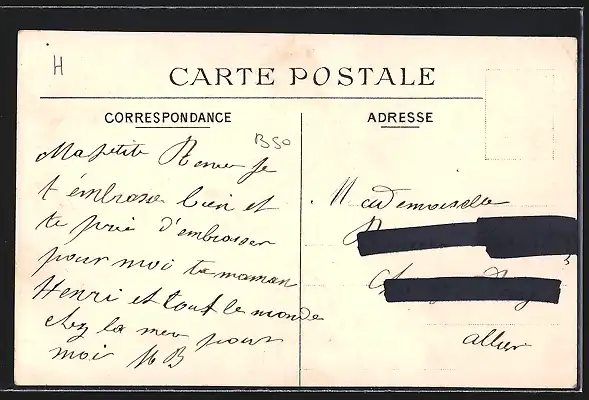 H
CARTE POSTALE
CORRESPONDANCE
B50
Ma petite Renee je
t'embrasse bien et
te prie d'embrasser
pour moi ta maman
Henri et tout le monde
chez la mere pour
moi MB
ADRESSE
Mademoiselle
allier